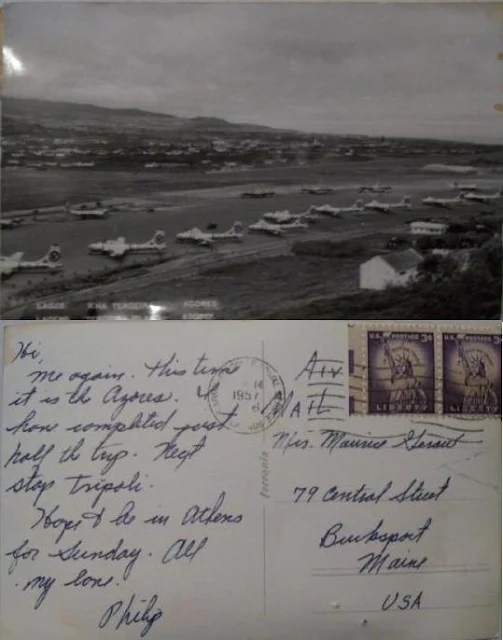 LAGES RHA TERCEIRA AZORES
Hi,
Me again. This time
it is the Azores. I
have completed just
half the trip. Next
stop Tripoli.
Hope to be in Athens
for Sunday. All
my love.
Philip
1957
Air
Mail
U.S. POSTAGE 3¢
LIBERTY
U.S. POSTAGE 3¢
LIBERTY
Mrs. Maurice
79 Central Street
Bucksport
Maine
USA